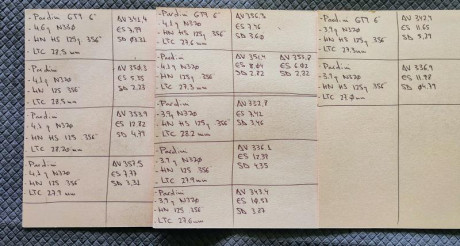 - Pardini GT9 6"
- 4.6g N320
- HN HS 125g .356"
- LTC 28.5mm
AV 342.4
ES 3.79
- Pardini
- 4.2g N320
- HN 125 .356"
- LTC 28.5mm
AV 350.3
ES 5.35
SD 2.23
- Pardini
- 4.3g N320
- HN 125 .356"
- LTC 28.20mm
AV 353.9
ES 12.82
SD 4.79
- Pardini
- 4.2g N320
- HN 125 356"
- LTC 27.9mm
AV 357.5
ES 7.77
SD 3.32
- Pardini GT9 6"
- 4.1g N320
- HN HS 125g .356"
- LTC 27.6mm
AV 356.3
ES 7.46
SD 3.60
- Pardini
- 4.1g N320
- HN 125 356"
- LTC 27.3mm
AV 351.4
ES 8.64
SD 2.82
AV 355.8
ES 6.02
SD 2.22
- Pardini
- 3.9g N320
- HN HS 125g 356"
- LTC 28.2mm
AV 332.8
ES 7.42
SD 3.46
- Pardini
- 3.9g N320
- HN 125 356"
- LTC 27.9mm
AV 336.1
ES 12.37
SD 4.35
- Pardini
- 3.9g N320
- HN 125 356"
- LTC 27.6mm
AV 343.4
ES 10.57
SD 3.27
- Pardini GT9 6"
- 3.9g N320
- HN HS 125g .356"
- LTC 27.3mm
AV 342.1
ES 11.65
SD 5.27
- Pardini
- 3.7g N320
- HN HS 125g 356"
- LTC 27.0mm
AV 336.9
ES 11.98
SD 04.79